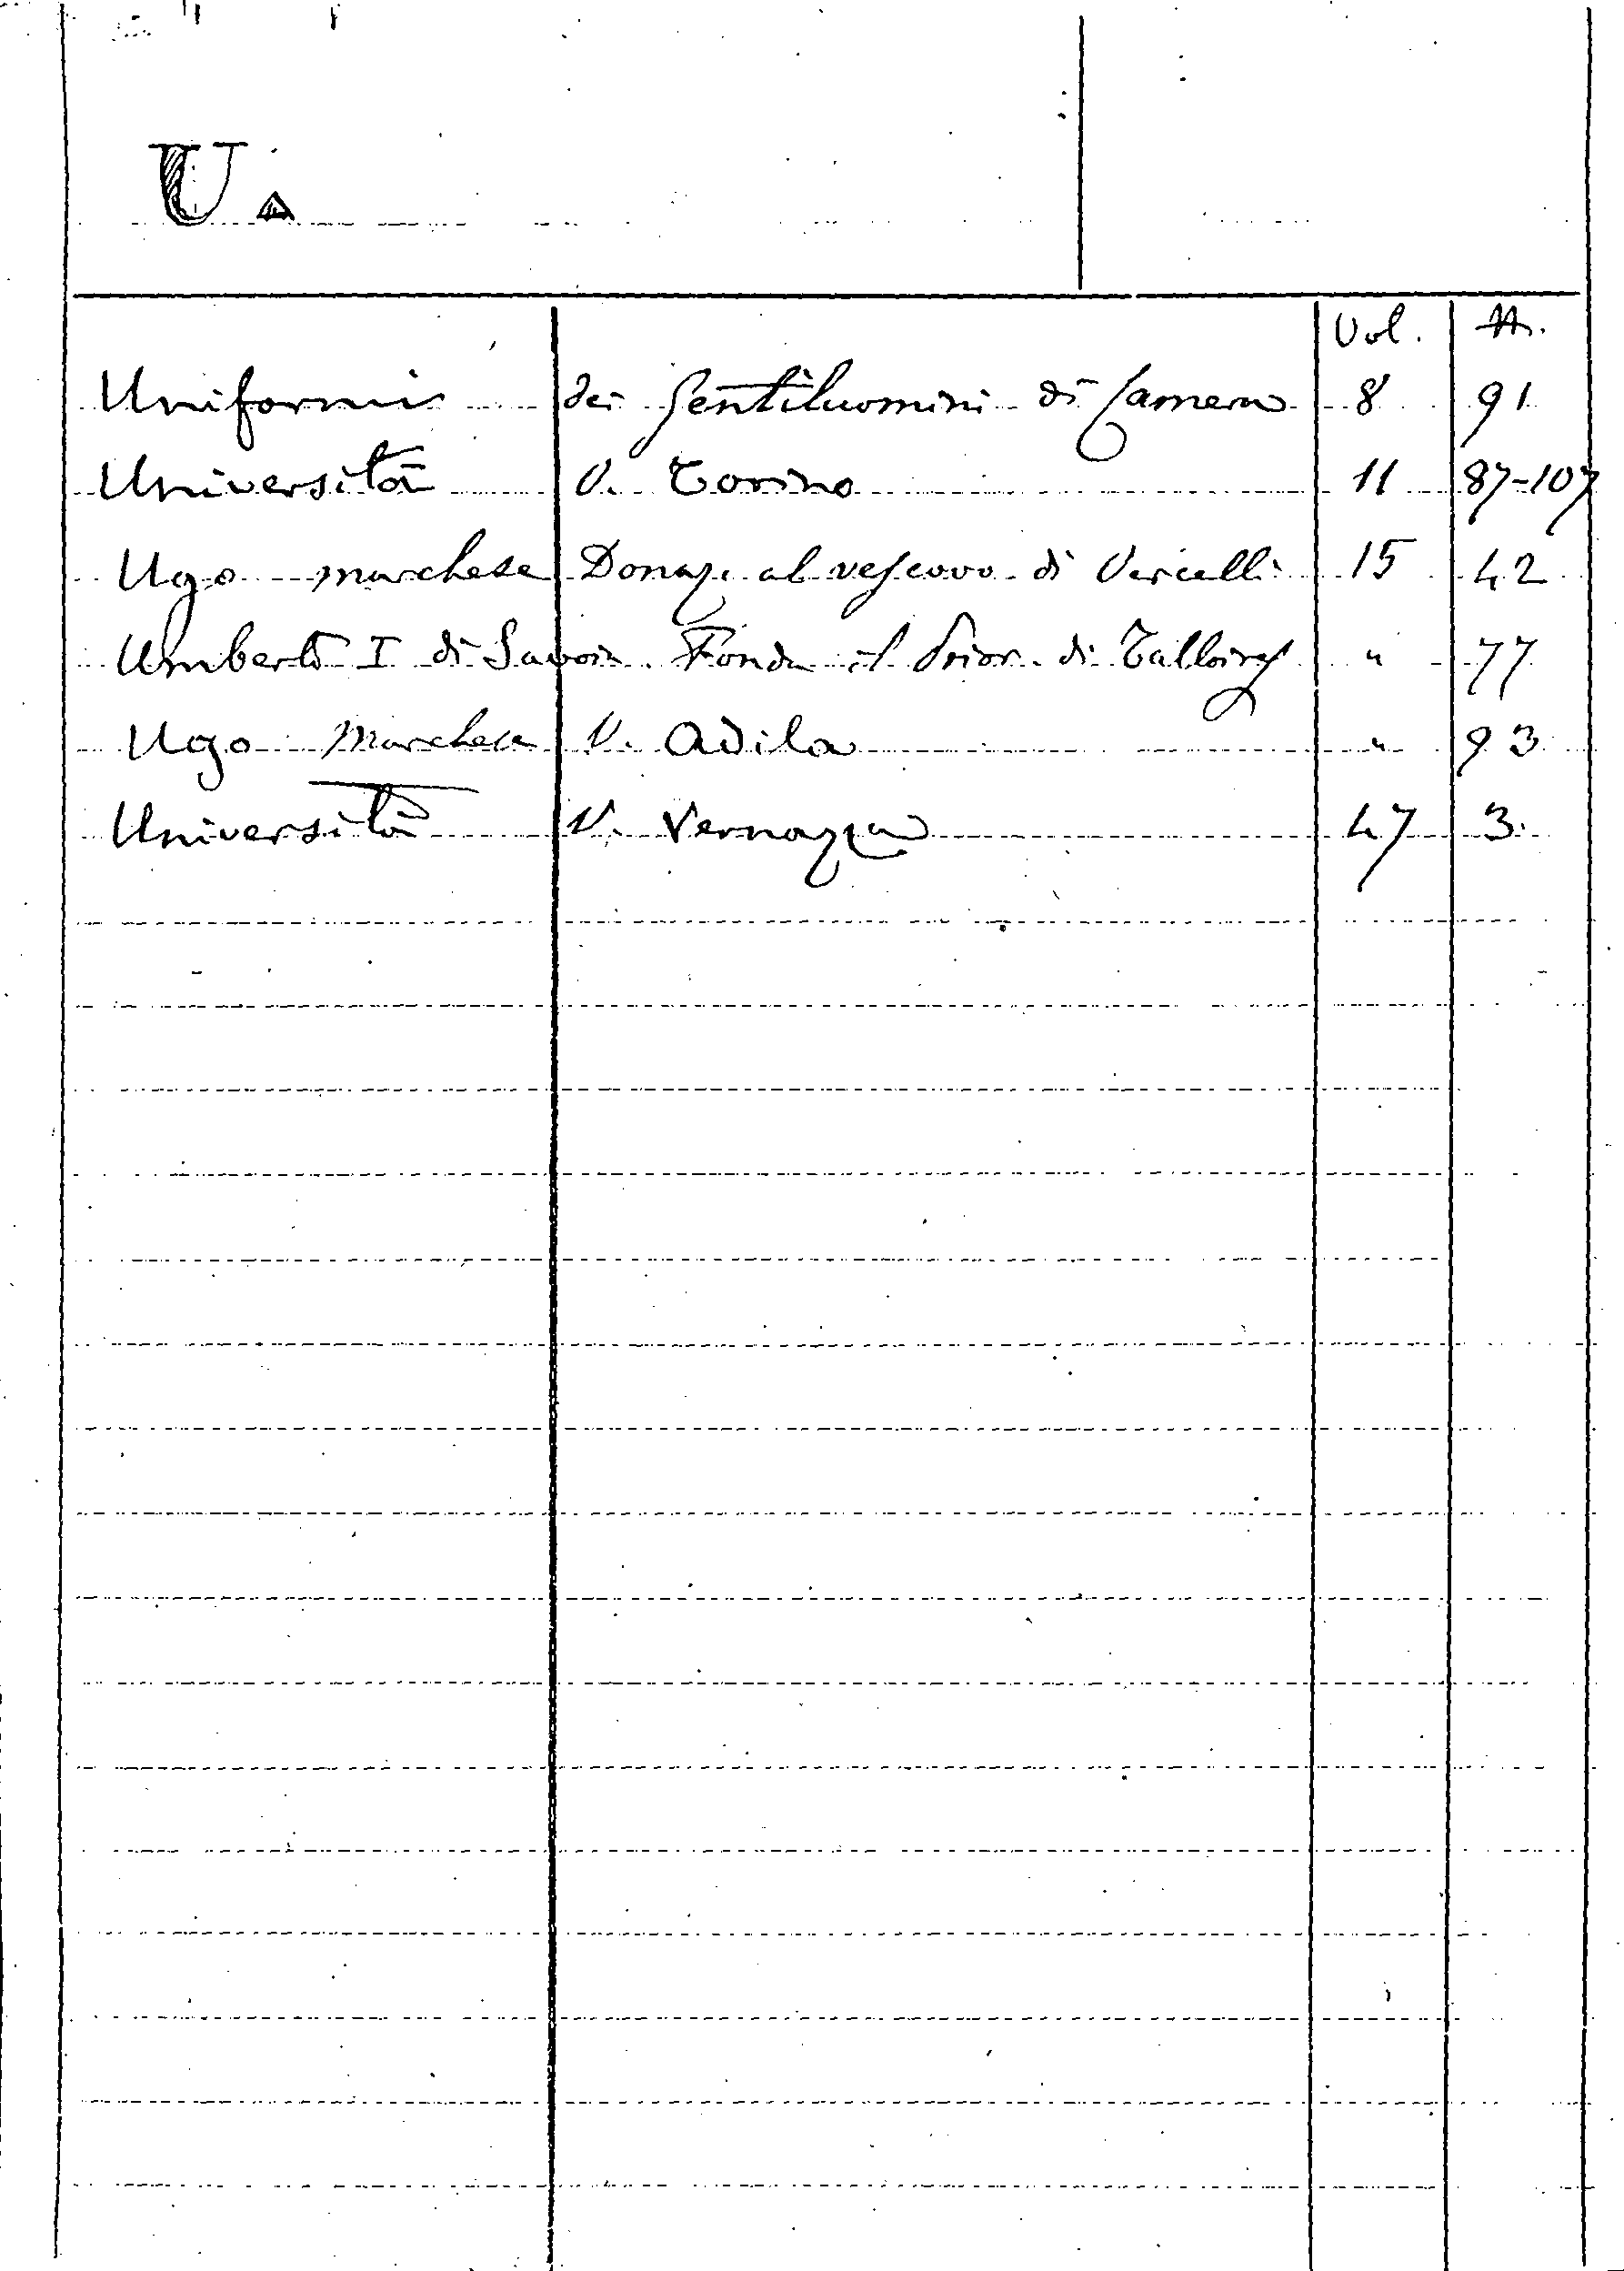 U.
Vol. N.
Uniformi dei Gentiluomini di Camera 8 91
Università V. Torino 11 87-107
Ugo marchese Donaz. al vescovo di Vercelli 15 42
Umberto I di Savoia Fonda il Prior. di Talloires " 77
Ugo Marchese V. Adila " 93
Università V. Vernazza 47 3.